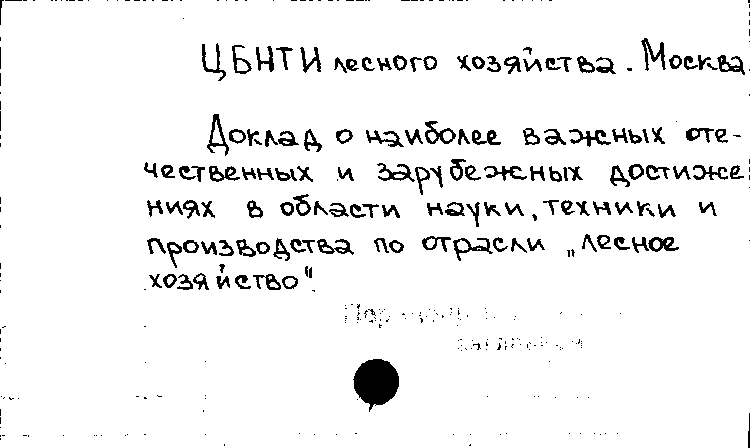 ЦБНТИ лесного хозяйства. Москва
Доклад о наиболее важных оте-
чественных и зарубежных достиже
ниях в области науки, техники и
производства по отрасли „лесное
хозяйство".